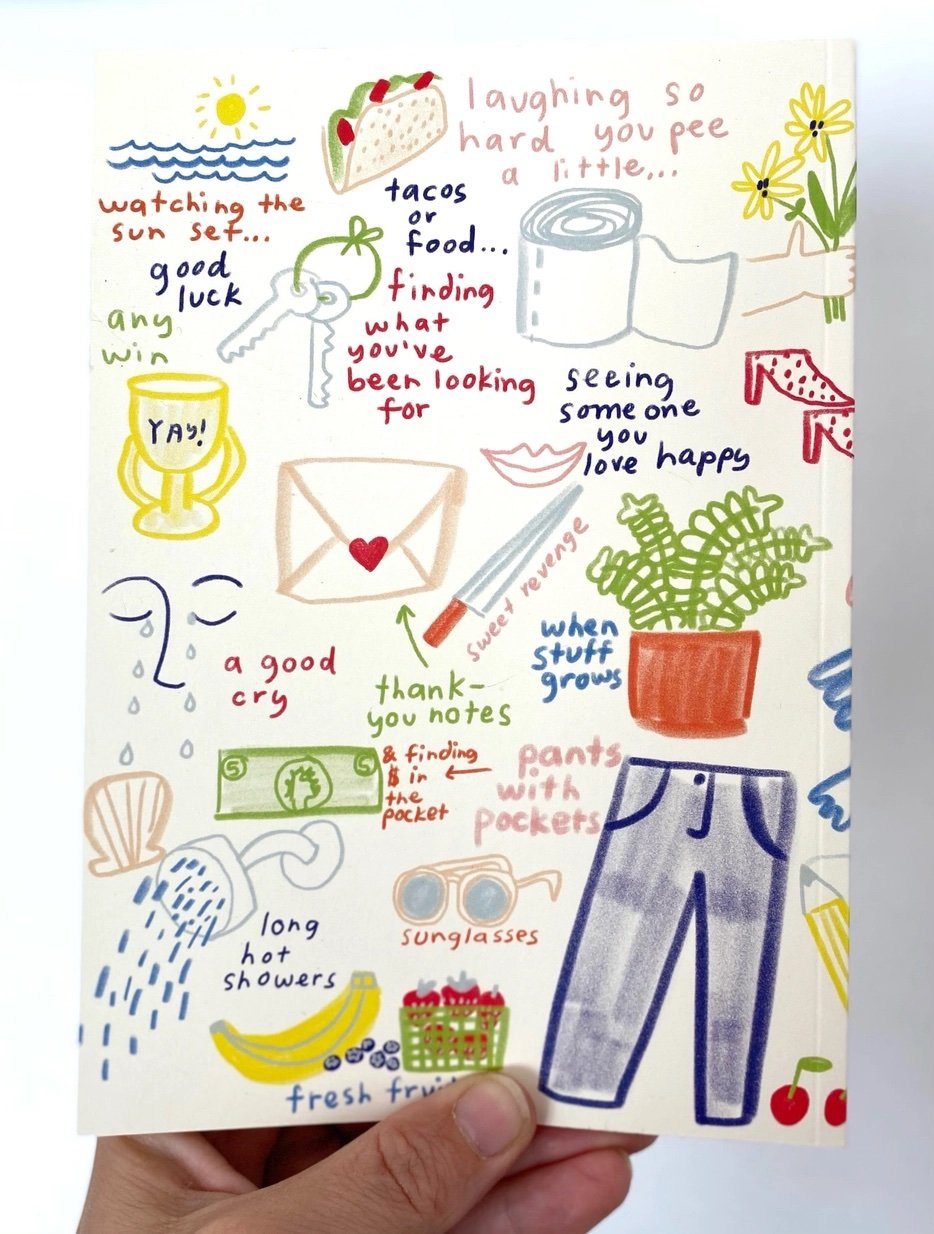 laughing so
hard you pee
a little...
watching the
sun set...
tacos
or
food...
good
luck
any
win
YAY!
finding
what
you've
been looking
for
seeing
someone
you
love happy
sweet revenge
when
stuff
grows
a good
cry
thank-
you notes
5 5
& finding
$ in
the
pocket
pants
with
pockets
sunglasses
long
hot
showers
fresh